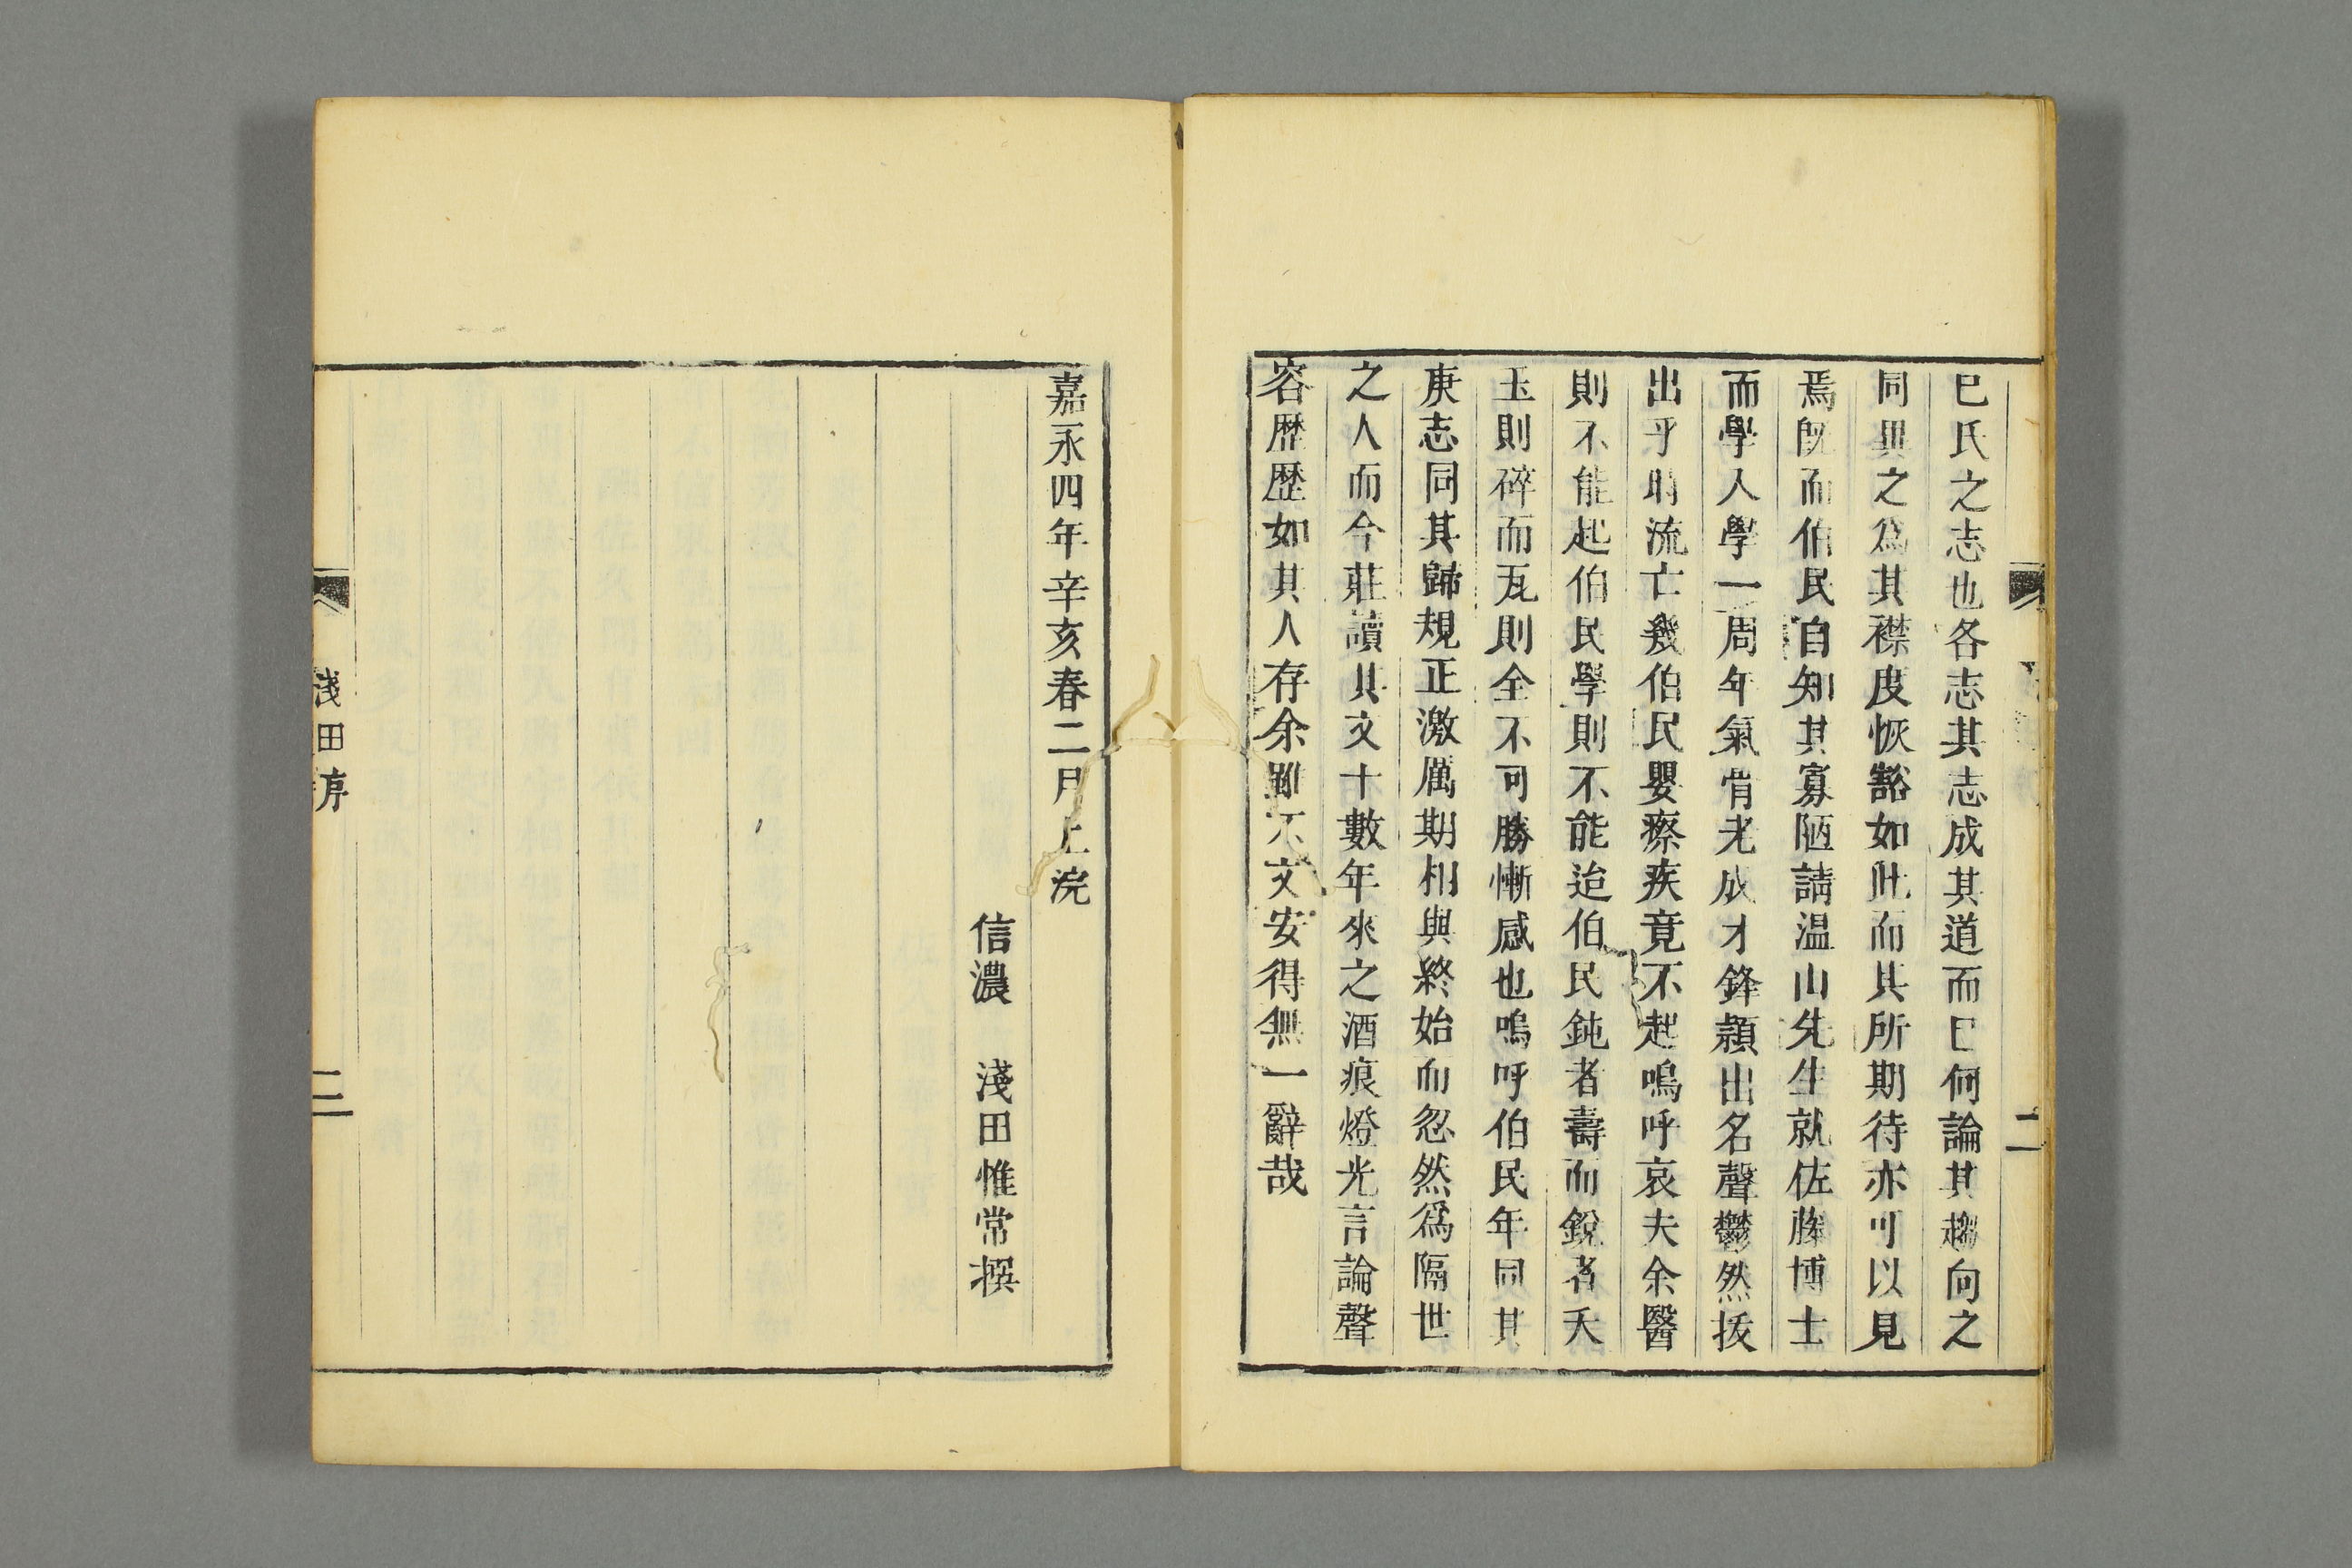 巳氏之志也各志其志成其道而巳何論其趨向之
同異之爲其襟度恢豁如此而其所期待亦可以見
焉既而伯民自知其寡陋請温山先生就佐藤博士
而學人學一周年氣骨老成才鋒穎出名聲鬱然抜
出乎時流亡幾伯民嬰瘵疾竟不起嗚呼哀夫余醫
則不能起伯民學則不能追伯民鈍者壽而鋭者夭
玉則碎而瓦則全不可勝慚感也嗚呼伯民年同其
庚志同其歸規正激厲期相與終始而忽然爲隔世
之人而今莊讀其文十數年來之酒痕燈光言論聲
容歴歴如其人存余雖不文安得無一辭哉
二
嘉永四年辛亥春二月上浣
信濃　淺田惟常撰
淺田序
三